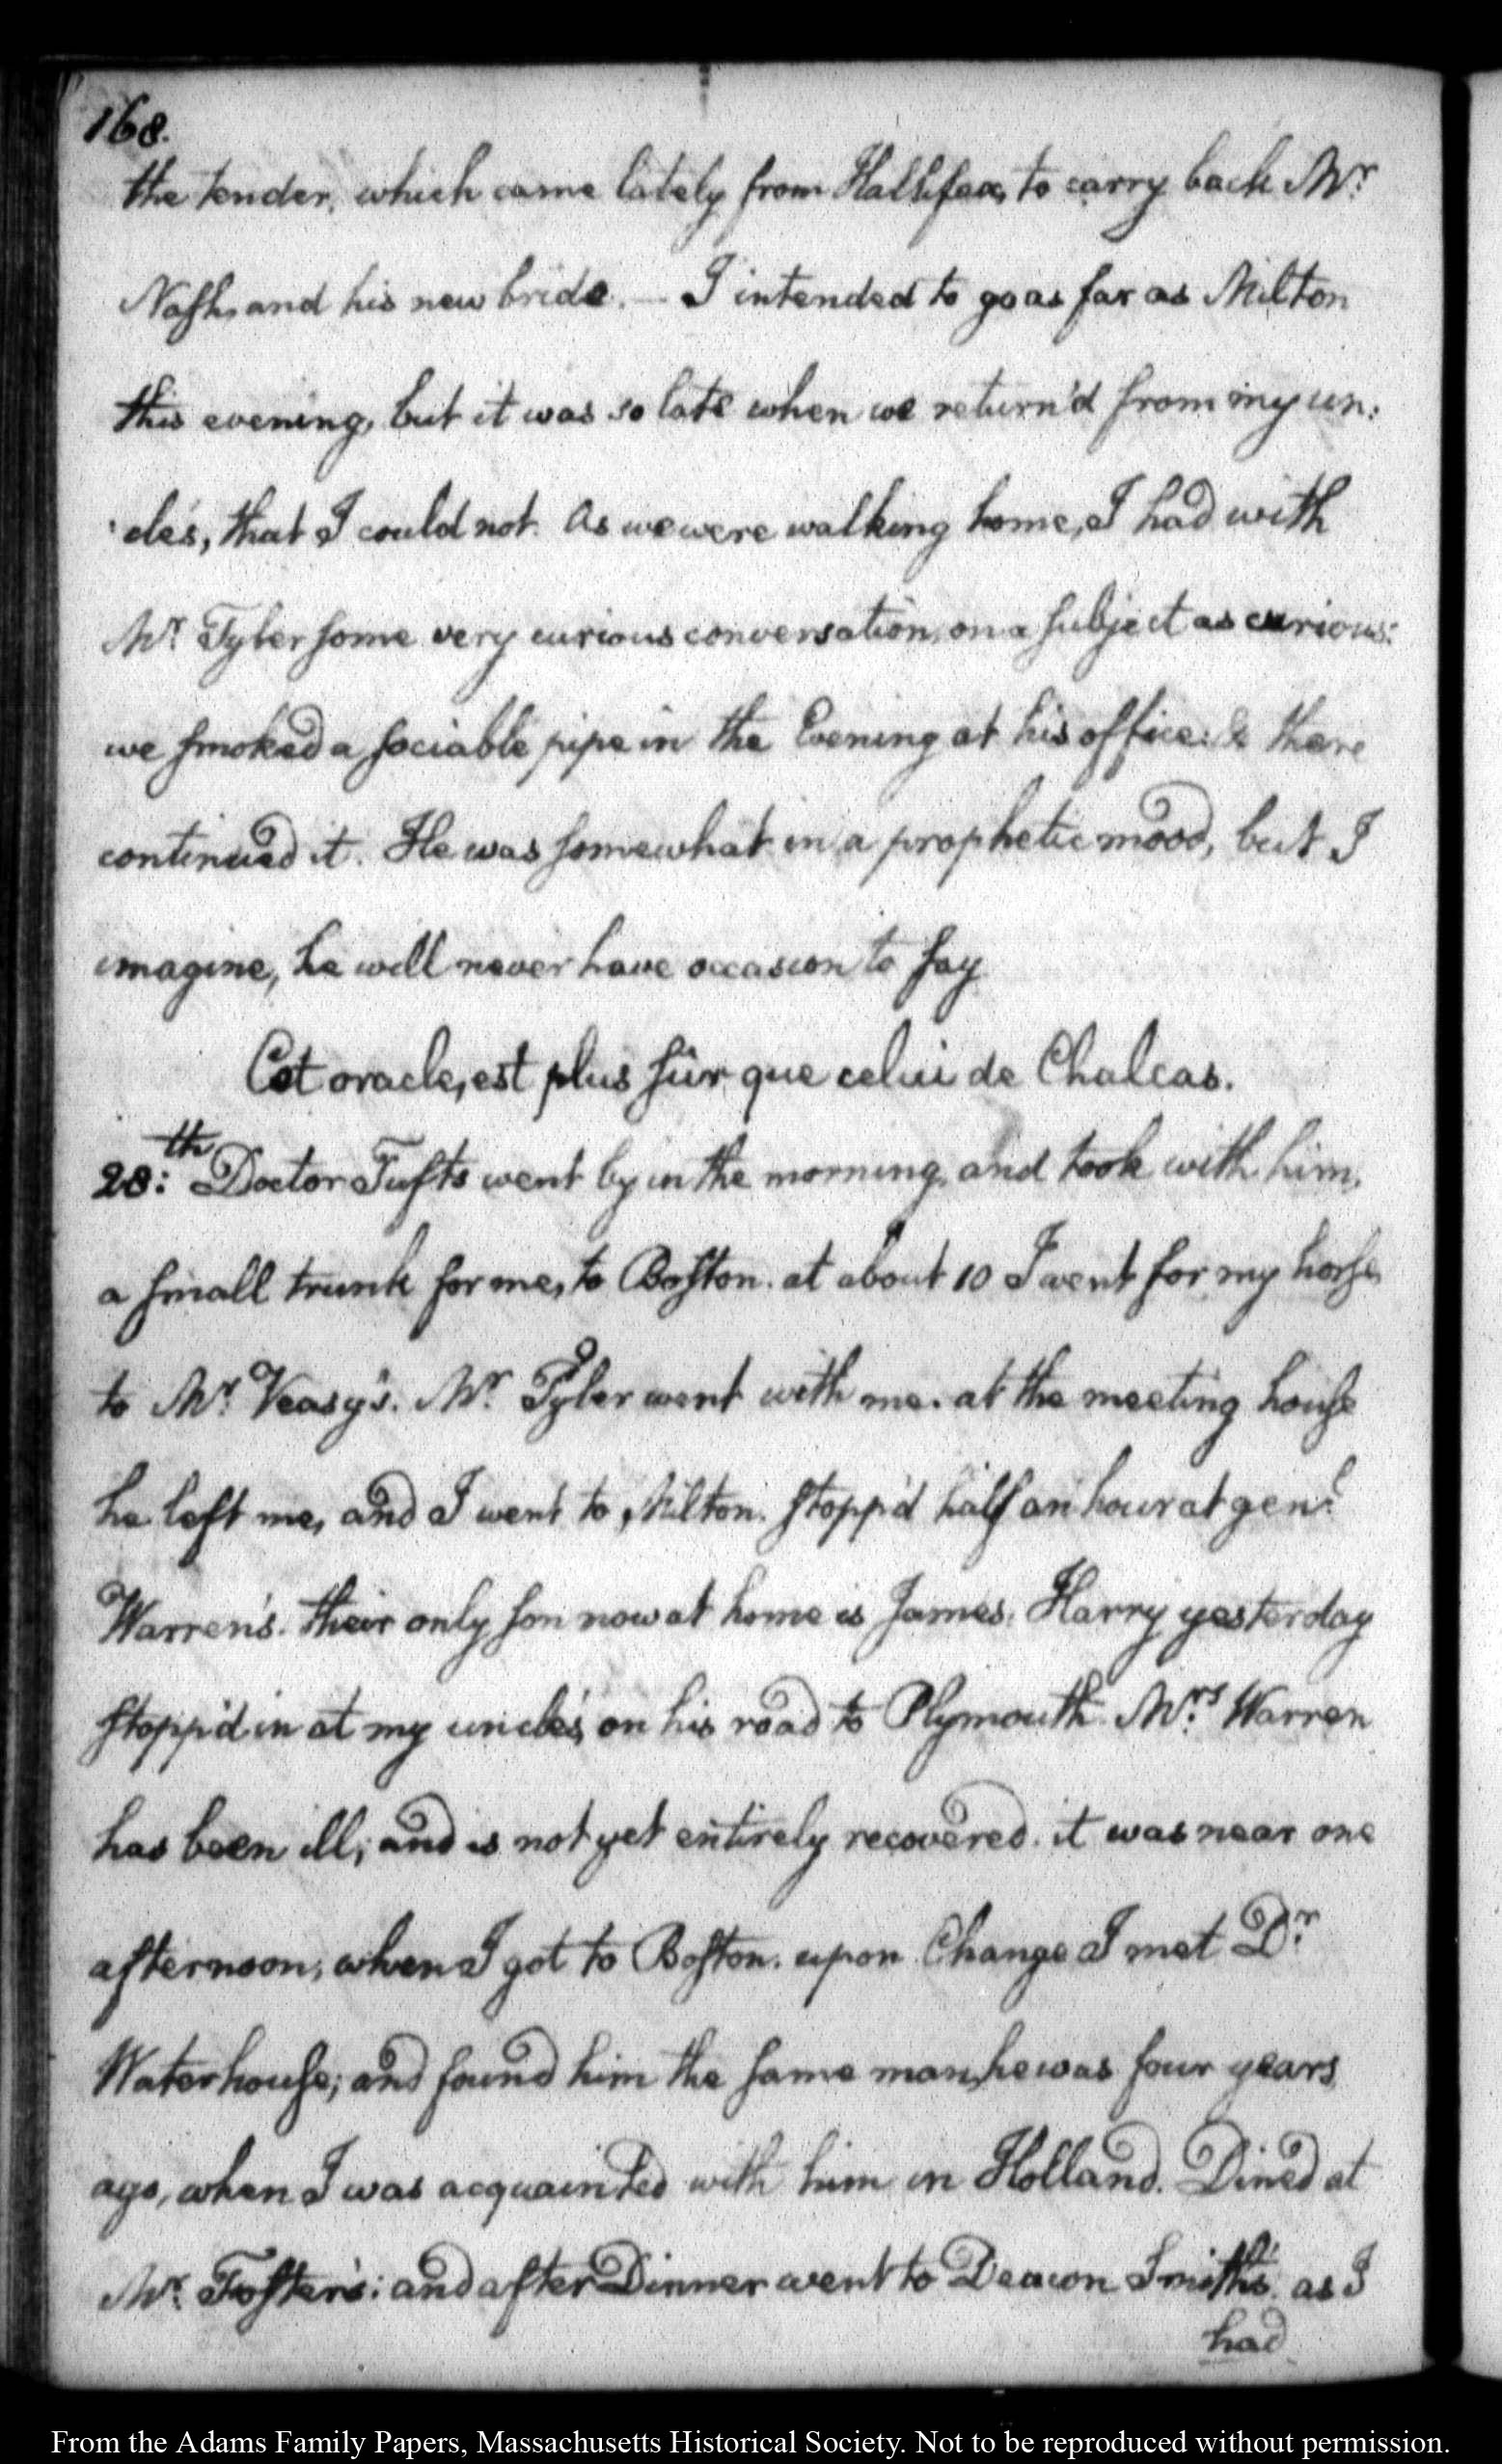 168.
the tender, which came lately from Hallifax, to carry back Mr.
Nash, and his new bride. — I intended to go as far as Milton
this evening, but it was so late when we return'd from my un:
:cle's, that I could not. As we were walking home, I had with
Mr. Tyler some very curious conversation, on a subject as curious:
we smoked a sociable pipe in the Evening at his office: & there
continued it. He was somewhat in a prophetic mood, but I
imagine, he will never have occasion to say
Cet oracle, est plus sûr que celui de Chalcas.
28:th Doctor Tufts went by in the morning, and took with him,
a small trunk for me, to Boston. at about 10 I went for my horse,
to Mr. Veasy's. Mr. Tyler went with me. at the meeting house
he left me, and I went to Milton. stopp'd half an hour at genl.
Warren's. their only son now at home is James. Harry yesterday
stopp'd in at my uncle's, on his road to Plymouth. Mrs. Warren
has been ill; and is not yet entirely recovered. it was near one
afternoon, when I got to Boston. upon Change I met Dr.
Waterhouse; and found him the same man, he was four years
ago, when I was acquainted with him in Holland. Dined at
Mr. Foster's: and after Dinner went to Deacon Smith's. as I
had
From the Adams Family Papers, Massachusetts Historical Society. Not to be reproduced without permission.